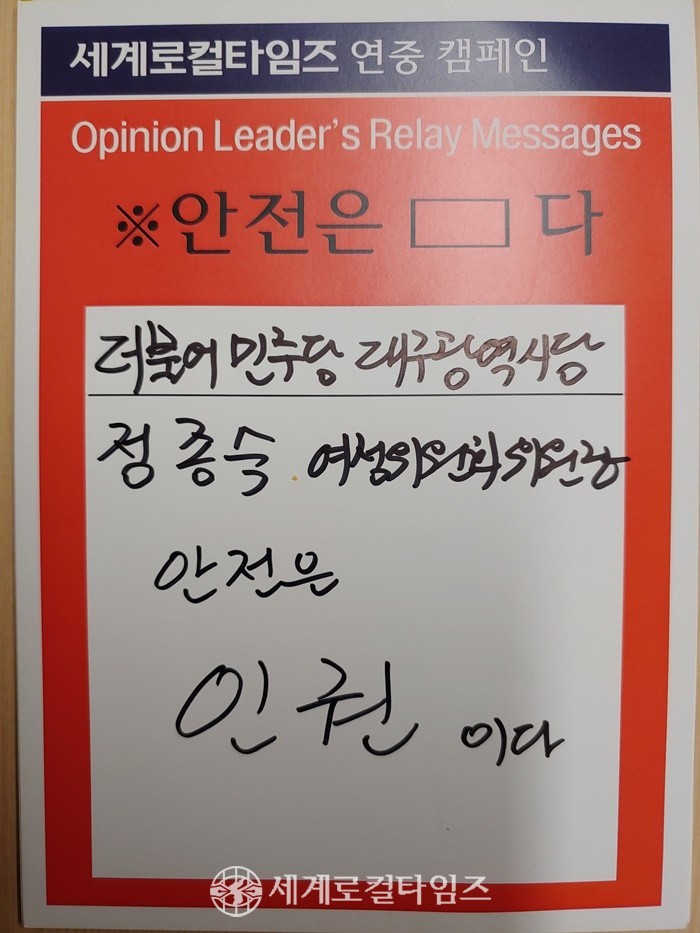 세계로컬타임즈 연중 캠페인
Opinion Leader's Relay Messages
※안전은 □ 다
더불어민주당 대구광역시당
정종숙. 여성위원회위원장
안전은
인권 이다
세계로컬타임즈